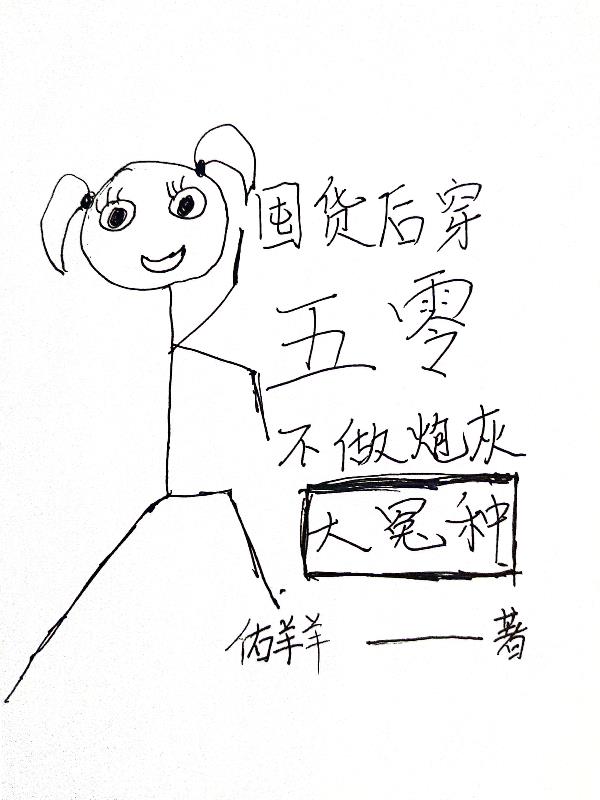 囤货后穿
五零
不做炮灰
大冤种
佑羊羊 ——著